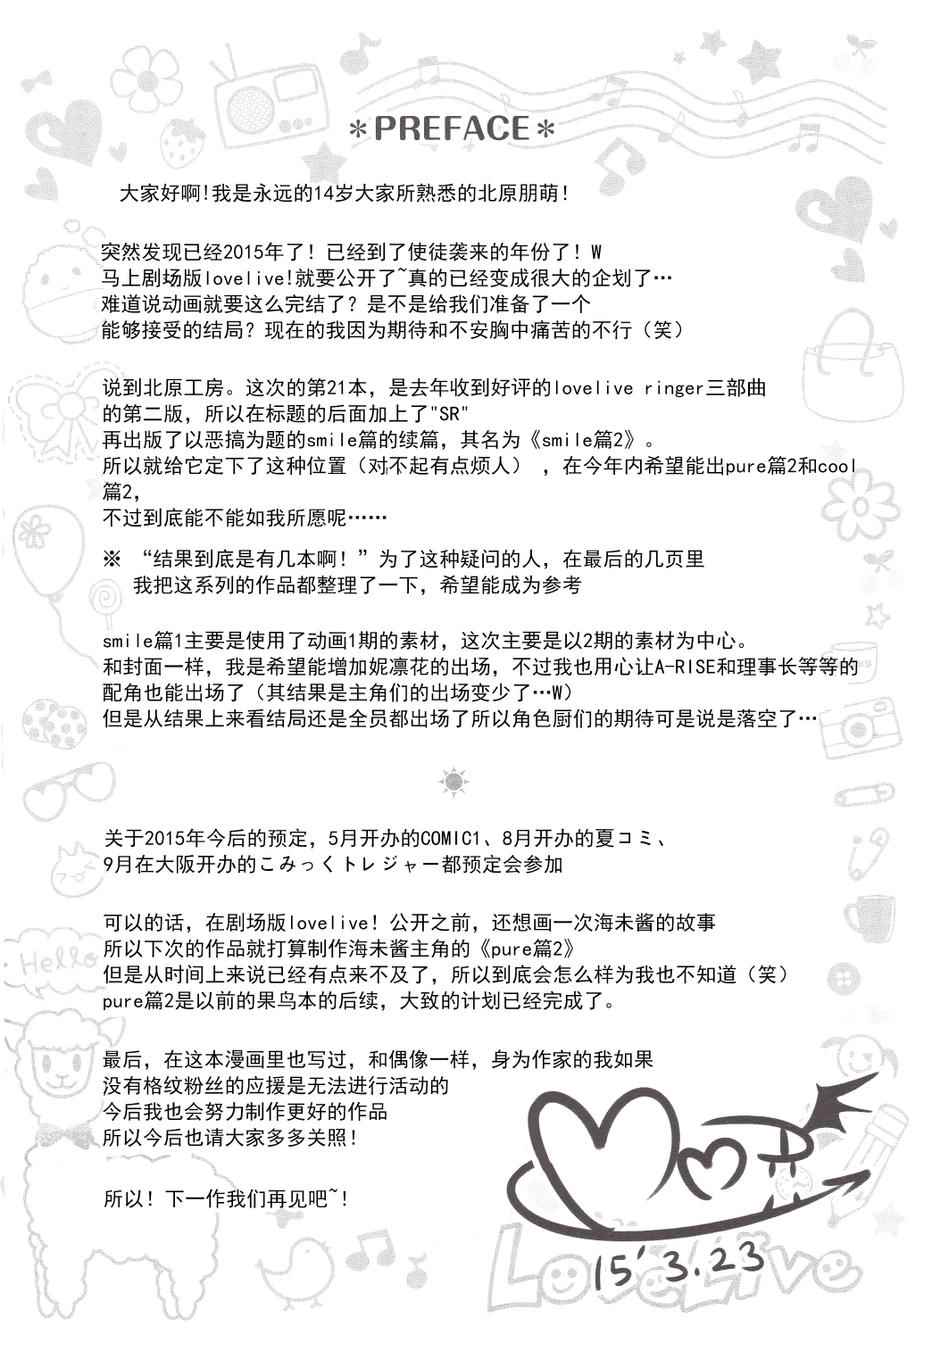 ＊PREFACE＊
大家好啊!我是永远的14岁大家所熟悉的北原朋萌!
突然发现已经2015年了! 已经到了使徒袭来的年份了! W
马上剧场版lovelive!就要公开了~真的已经变成很大的企划了…
难道说动画就要这么完结了? 是不是给我们准备了一个
能够接受的结局? 现在的我因为期待和不安胸中痛苦的不行（笑）
说到北原工房。这次的第21本, 是去年收到好评的lovelive ringer三部曲
的第二版, 所以在标题的后面加上了"SR"
再出版了以恶搞为题的smile篇的续篇, 其名为《smile篇2》。
所以就给它定下了这种位置（对不起有点烦人） , 在今年内希望能出pure篇2和cool
篇2,
不过到底能不能如我所愿呢……
※ “结果到底是有几本啊! ”为了这种疑问的人, 在最后的几页里
我把这系列的作品都整理了一下, 希望能成为参考
smile篇1主要是使用了动画1期的素材, 这次主要是以2期的素材为中心。
和封面一样, 我是希望能增加妮凛花的出场, 不过我也用心让A-RISE和理事长等等的
配角也能出场了（其结果是主角们的出场变少了…W）
但是从结果上来看结局还是全员都出场了所以角色厨们的期待可是说是落空了…
关于2015年今后的预定, 5月开办的COMIC1、8月开办的夏コミ、
9月在大阪开办的こみっくトレジャー都预定会参加
可以的话, 在剧场版lovelive! 公开之前, 还想画一次海未酱的故事
所以下次的作品就打算制作海未酱主角的《pure篇2》
但是从时间上来说已经有点来不及了, 所以到底会怎么样为我也不知道（笑）
pure篇2是以前的果鸟本的后续, 大致的计划已经完成了。
最后, 在这本漫画里也写过, 和偶像一样, 身为作家的我如果
没有格纹粉丝的应援是无法进行活动的
今后我也会努力制作更好的作品
所以今后也请大家多多关照!
所以! 下一作我们再见吧~!
Hello
15' 3.23
LoveLive